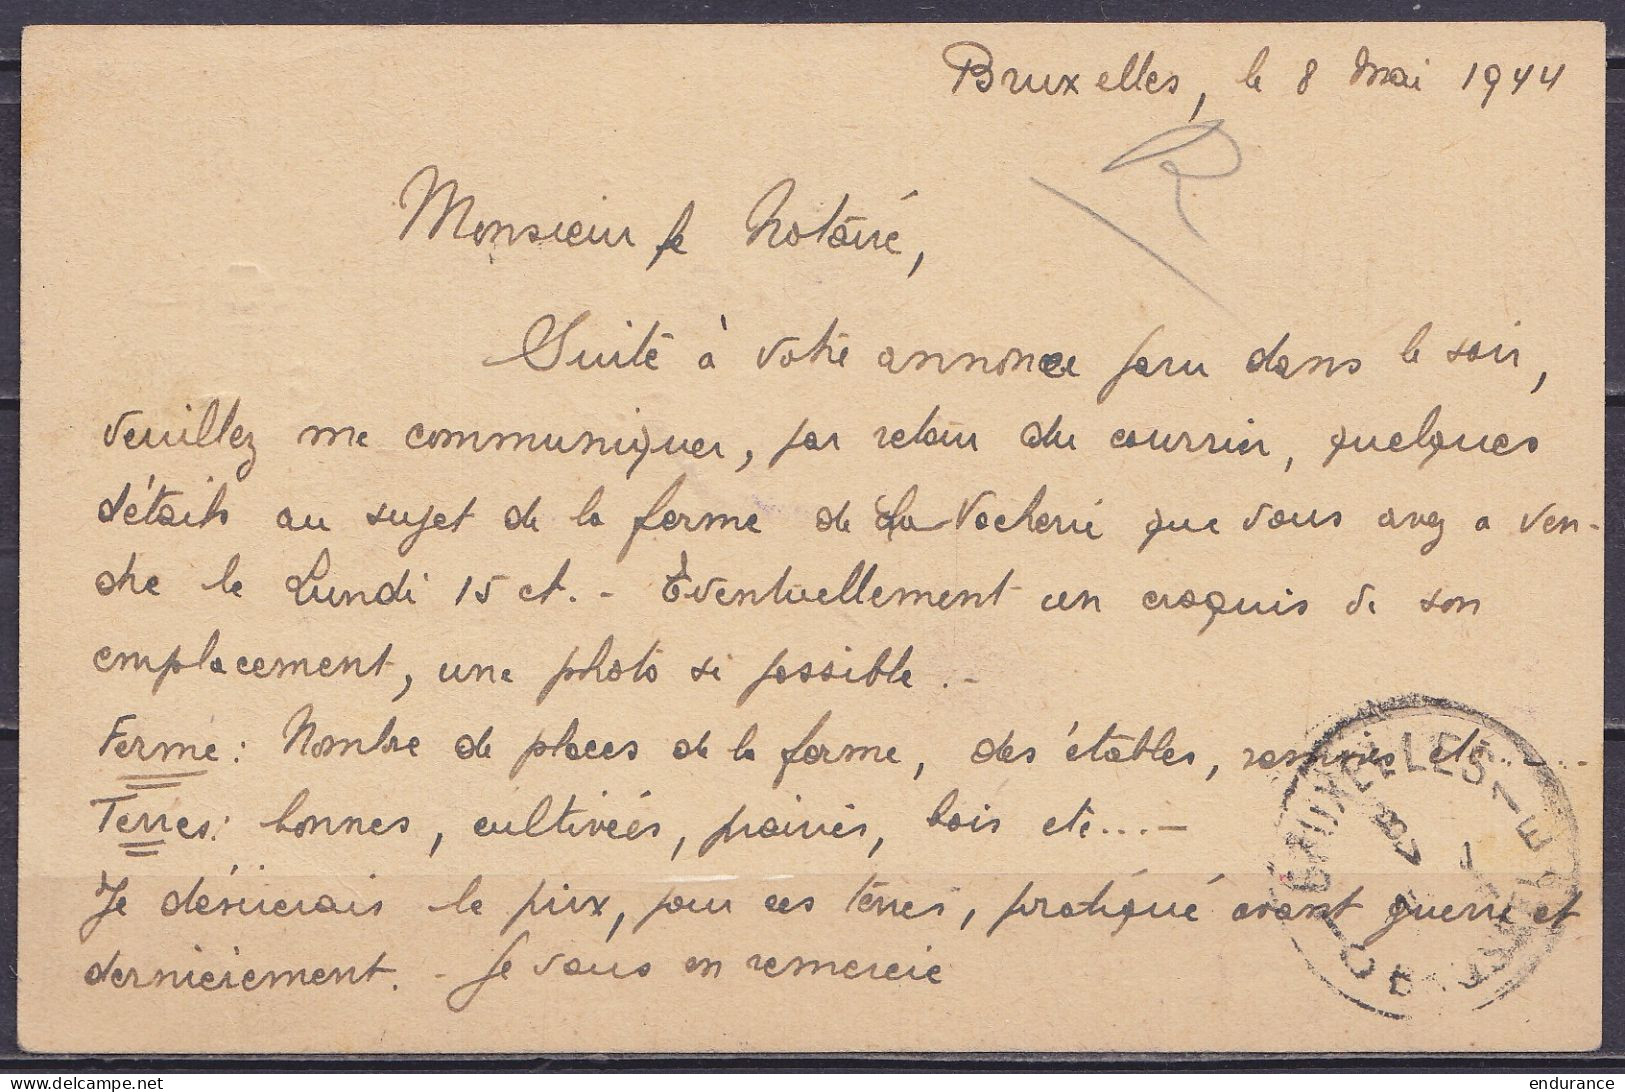 Bruxelles, le 8 mai 1944
R
Monsieur le Notaire,
Suite à votre annonce paru dans le soir,
veuillez me communiquer, par retour du courrier, quelques
détails au sujet de la ferme de La Vacherie que vous avez a ven-
dre le Lundi 15 ct. - Eventuellement un croquis de son
emplacement, une photo si possible. -
Ferme: Nombre de places de la ferme, des étables, remises etc.....
Terres: bonnes, cultivées, prairies, bois etc....-
Je désirerais le prix, pour ces terres, pratiqué avant guerre et
dernièrement. - Je vous en remercie
BRUXELLES
BRUSSEL
delcampe.net
endurance